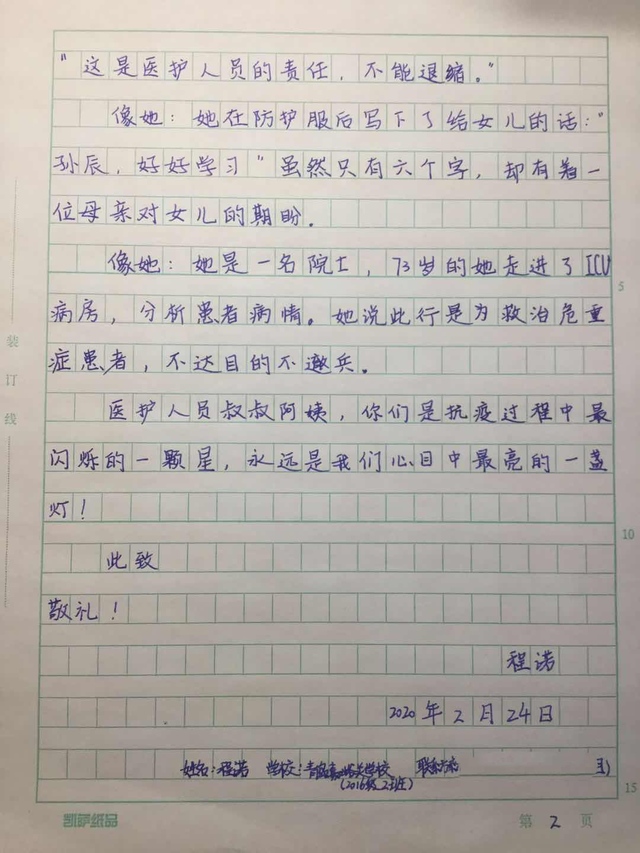 “这是医护人员的责任，不能退缩。”
像她：她在防护服后写下了给女儿的话：“
孙辰，好好学习”虽然只有六个字，却有着一
位母亲对女儿的期盼．
像她：她是一名院士，73岁的她走进了ICU
5
病房，分析患者病情。她说此行是为救治危重
症患者，不达目的不撤兵。
装订线
医护人员叔叔阿姨，你们是抗疫过程中最
闪烁的一颗星，永远是我们心目中最亮的一盏
灯！
10
此致
敬礼！
程诺
2020年2月24日
姓名：程诺 学校：青岛 学校 联系方
(2016级2班)
15
凯萨纸品 第2页